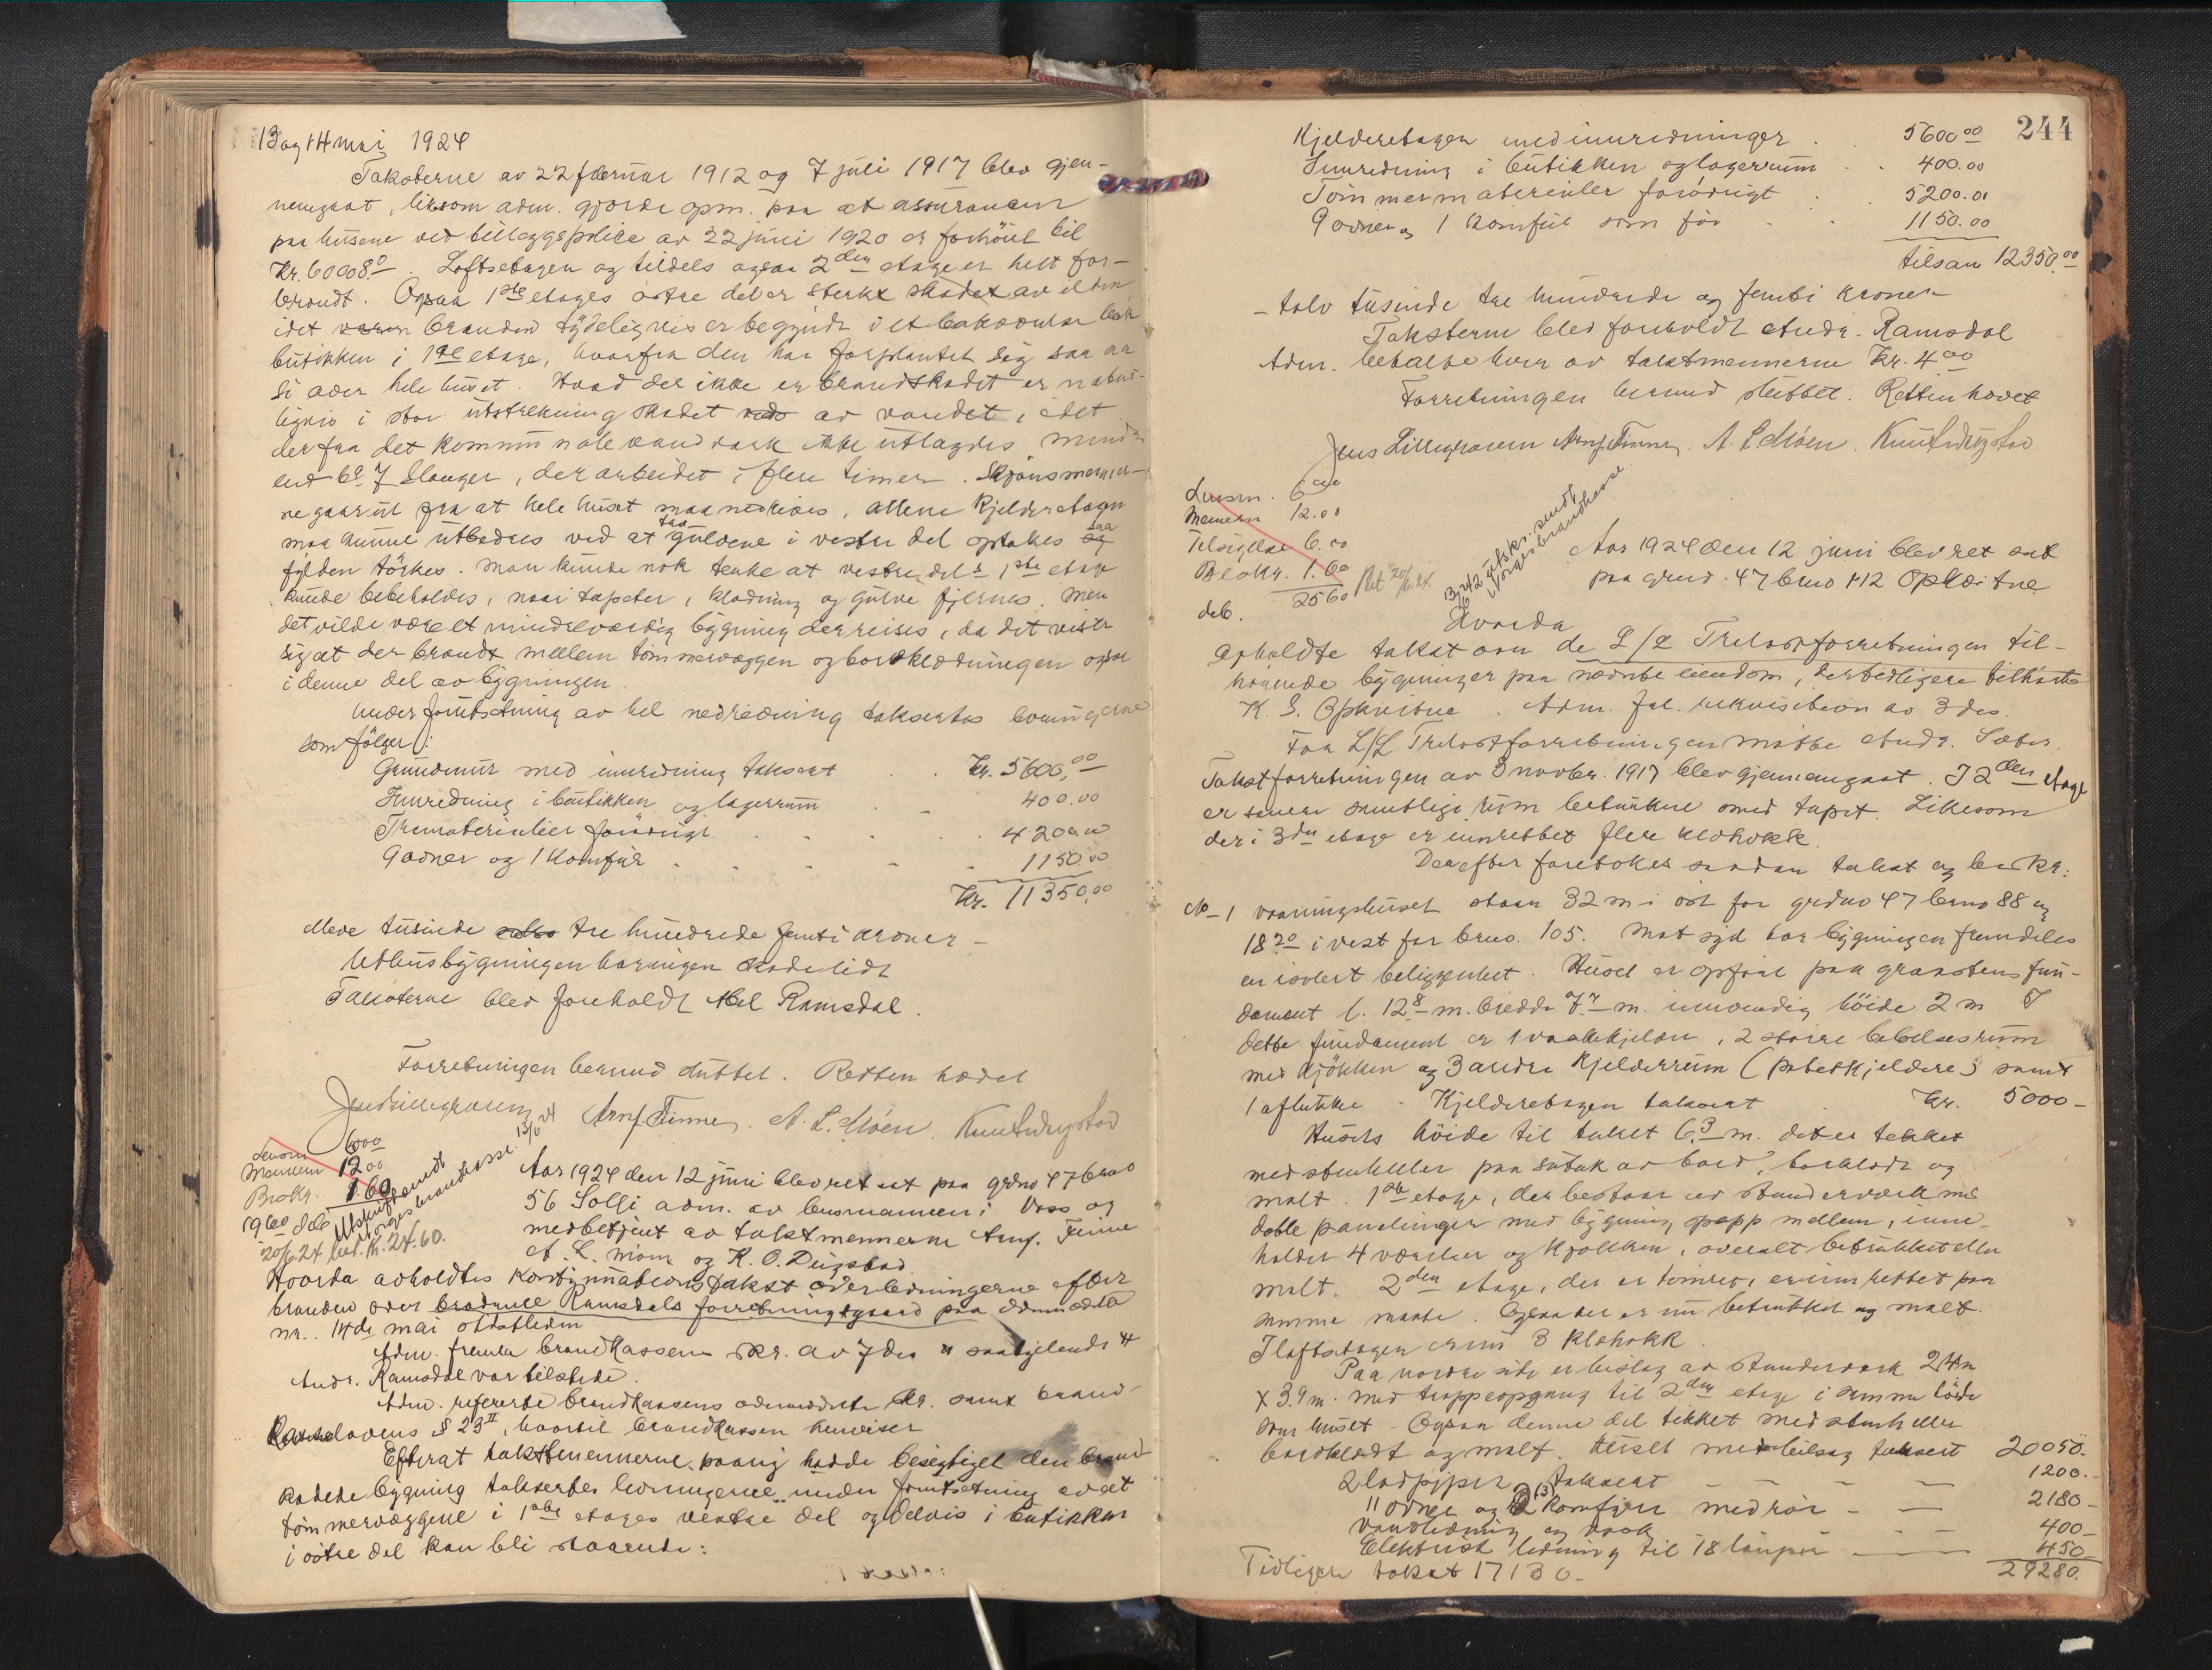 13 og 14 mai 1924
Taksterne av 22 februar 1912 og 7 juli 1917 blev gjen-
nemgaat, liksom adm. gjorde opm. paa at assurancen
paa husene ved tillægspolice av 22 juni 1920 er forhöiet til
Kr. 60008.0. Loftsetagen og tildels ogsaa 2den etage er helt for-
brændt. Ogsaa 1ste etages östre del er sterkt skadet av ilden
idet branden tydeligvis er begyndt i et bakværelse bak
butikken i 1ste etage, hvorfra den har forplantet sig saa at
si over hele huset. Hvad der ikke er brandskadet er natur-
ligvis i stor utstrekning skadet av vandet, idet
der fra det kommunale vandverk ikke utlagdes mindre
end 6 a 7 slanger, der arbeidet i flere timer. Skjönsmænne-
ne gaar ut fra at hele huset maa nedrives, allene kjelderetagen
maa kunne utbedres ved at gulvene i vestre del optakes saa
fylden törkes. Man kunde nok tenke at vestre del i 1ste etage
kunde beholdes, naar tapeter, klædning og gulve fjernes, men
det vilde være et mindreværdig bygning der reises, da det viste
sig at der brandt mellem tömmervæggen og bordklædningen ogsaa
i denne del av bygningen.
Under forutsetning av hel nedrivning taksertes levningerne
som følger:
Grundmur med innredning taksert . . Kr. 5600,00
Innredning i butikken og lagerrum . - 400.00
Trematerialier forövrigt . . . . 4200.00
9 ovner og 1 komfur - . . - - 1150.00
Kr. 11350,00
elleve tusinde tre hundrede femti kroner -
Uthusbygningen har ingen skade lidt
Taksterne blev foreholdt Abel Ramsdal.
Forretningen dermed sluttet. Retten hævet
Jens Lillegraven Arnf. Finne. A. L. Möen. Knut Dugstad
Lensm 6.00
Mennene 12.00
Brokr. 1.60
19.60 deb
Utskrift sendt
Norges brandkasse 13/6 24
20/6 24 bet. Kr. 24.60.
Aar 1924 den 12 juni blev ret sat paa grdno 47 brno
56 Solli adm. av lensmannen i Voss og
medbetjent av takstmennerne Arnf. Finne
A. L. Möen og K. O. Dugstad
Hvorda avholdtes kontinuationstakst over levningerne efter
branden over Brødrene Ramsdals forretningsgaard paa ovennævnte
nr. 14de mai sidstleden
Adm. fremla brandkassens skr. av 7 des " saalydende "
Andr. Ramsdal var tilstede.
Adm. refererte brandkassens ovennævnte skr. samt brand-
kasselovens § 23 II, hvortil brandkassen henviser
Efterat takstmennerne paany hadde besigtiget den brand-
skadede bygning taksertes levningerne under forutsetning av at
tömmervæggene i 1ste etages vestre del og delvis i butikken
i östre del kan bli staaende:
244
Kjelderetagen med innredninger . . 5600 00
Innredning i butikken og lagerrum . . 400.00
Tömmermaterialer forövrigt . . 5200.00
9 ovner og 1 komfur som för - . 1150.00
tilsam 12350.00
- tolv tusinde tre hundrede og femti kroner
Taksterne blev foreholdt Andr. Ramsdal
Adm. betalte hver av takstmennerne Kr. 4 00
Forretningen dermed sluttet. Retten hævet
Jens Lillegraven Arnf. Finne. A. L. Möen. Knut Dugstad
Lensm. 6 00
Mennene 12.00
Tilsigelse 6.00
Brokr. 1.60
2560
deb.
Bet 20/6 24.
13/6 24 2 utskr. sendt
Norges brandkasse
Aar 1924 den 12 juni blev ret sat
paa grno. 47 brno 112 Opheitne
Hvorda
avholdte takst over de L/L Trelastforretningen til-
hörende bygninger paa nævnte eiendom, der tidligere tilhörte
K. S. Opheitne. Adm. fal. rekvisition av 3 ds.
For L/L Trelastforretningen møtte Andr. Sæter.
Takstforretningen av 3 novbr. 1917 blev gjennemgaat. I 2den etage
er senere samtlige rum betrukne med tapet. Likesom
der i 3dje etage er innrettet flere klæhokk.
Derefter foretokes saadan takst og beskr:
No - 1 vaaningshuset staar 32 m i öst for grdno 47 brno 88 og
18 20 i vest for brno. 105. Mot syd har bygningen fremdeles
en isolert beliggenhet. Huset er opfört paa graastensfun-
dament l. 12 8 m. bredde 7 7 m. innvendig höide 2 m I
dette fundament er 1 vaskekjelder, 2 större bebelsesrum
med kjökken og 3 andre kjelderrum (potetkjeldere) samt
1 aflukke - Kjelderetagen taksert . Kr. 5000 -
Husets höide til taket 6.3 m. det er tekket
med stenheller paa sutak av bord, bordklædt og
malt. 1ste etage, der bestaar av stenderverk med
doble panelinger med bygningspapp mellem, inne-
holder 4 værelser og kjökken, overalt betrukket eller
malt. 2den etage, der er tömret, er innrettet paa
samme maate. Ogsaa det er nu betrukket og malt.
I loftsetagen er nu 3 klæhokk.
Paa nordre side er bislag av stenderverk 2.4 m
x 3.9 m. med trappeopgang til 2den etage i samme höide
som huset - Ogsaa denne del tekket med stenheller
bordklædt og malt. Huset med bislag taksert 20050.
2 ladpiper, taksert - - - - 1200.-
11 ovner og 2 (3) komfyrer med rör - - 2180 -
Vandledning og vask - - 400 -
Elektrisk ledning til 18 lamper - - 450 -
Tidligere takst 17130 - 29280.